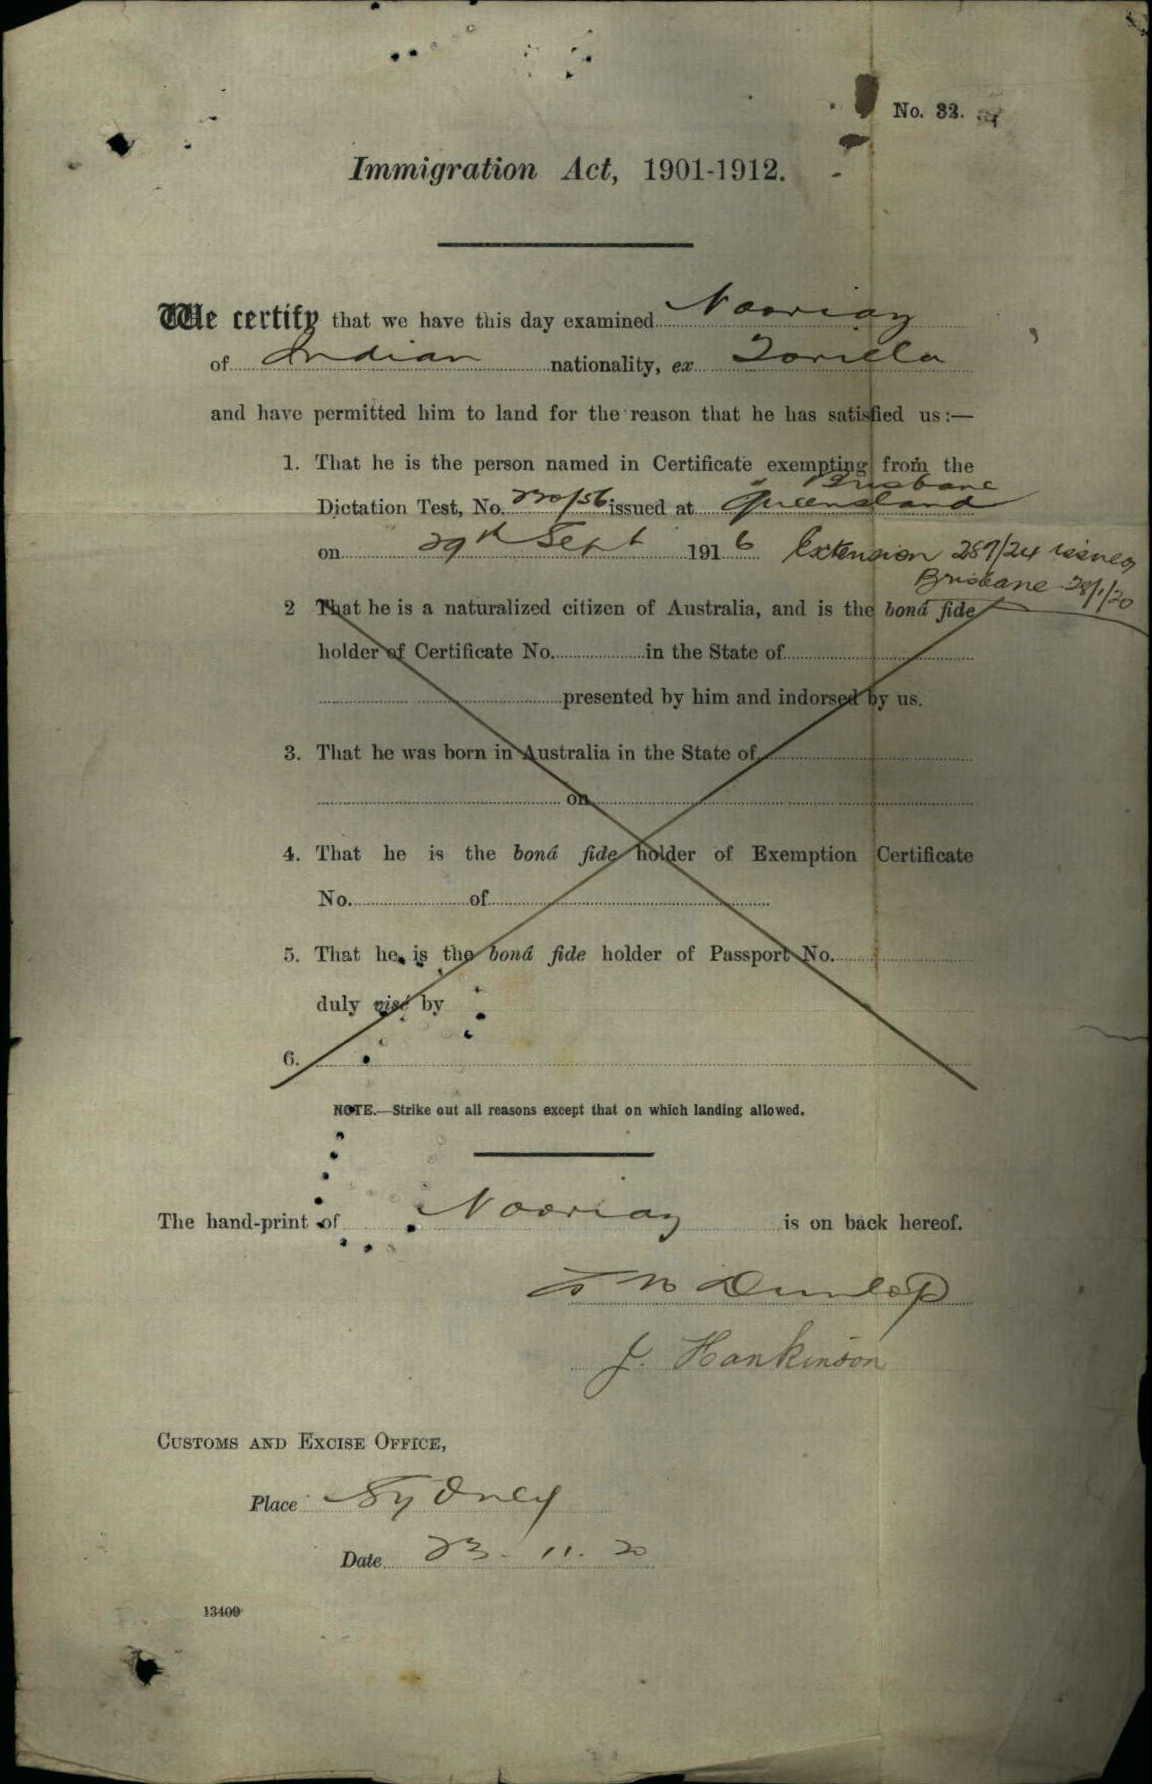 No. 32.
Immigration Act, 1901-1912.
We certify that we have this day examined Nooriay
of Indian nationality, ex
and have permitted him to land for the reason that he has satisfied us:—
1. That he is the person named in Certificate exempting from the
Brisbane
Dictation Test, No. 220/56 issued at Queensland
on 29th Sept 1916 Extension 287/24 issued
Brisbane 28/1/20
2 That he is a naturalized citizen of Australia, and is the boná fide
holder of Certificate No. in the State of
presented by him and indorsed by us.
3. That he was born in Australia in the State of
on
4. That he is the boná fide holder of Exemption Certificate
No. of
5. That he is the boná fide holder of Passport No.
duly visé by
6.
NOTE.—Strike out all reasons except that on which landing allowed.
The hand-print of Nooriay is on back hereof.
Dunlop
J. Hankinson
CUSTOMS AND EXCISE OFFICE,
Place Sydney
Date 23. 11. 20
13409